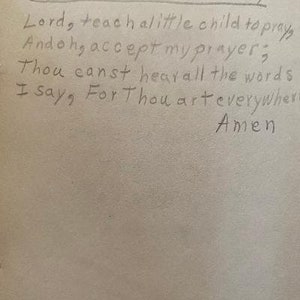 Lord, teach a little child to pray,
And oh, accept my prayer;
Thou canst hear all the words
I say, For Thou art everywhere
Amen